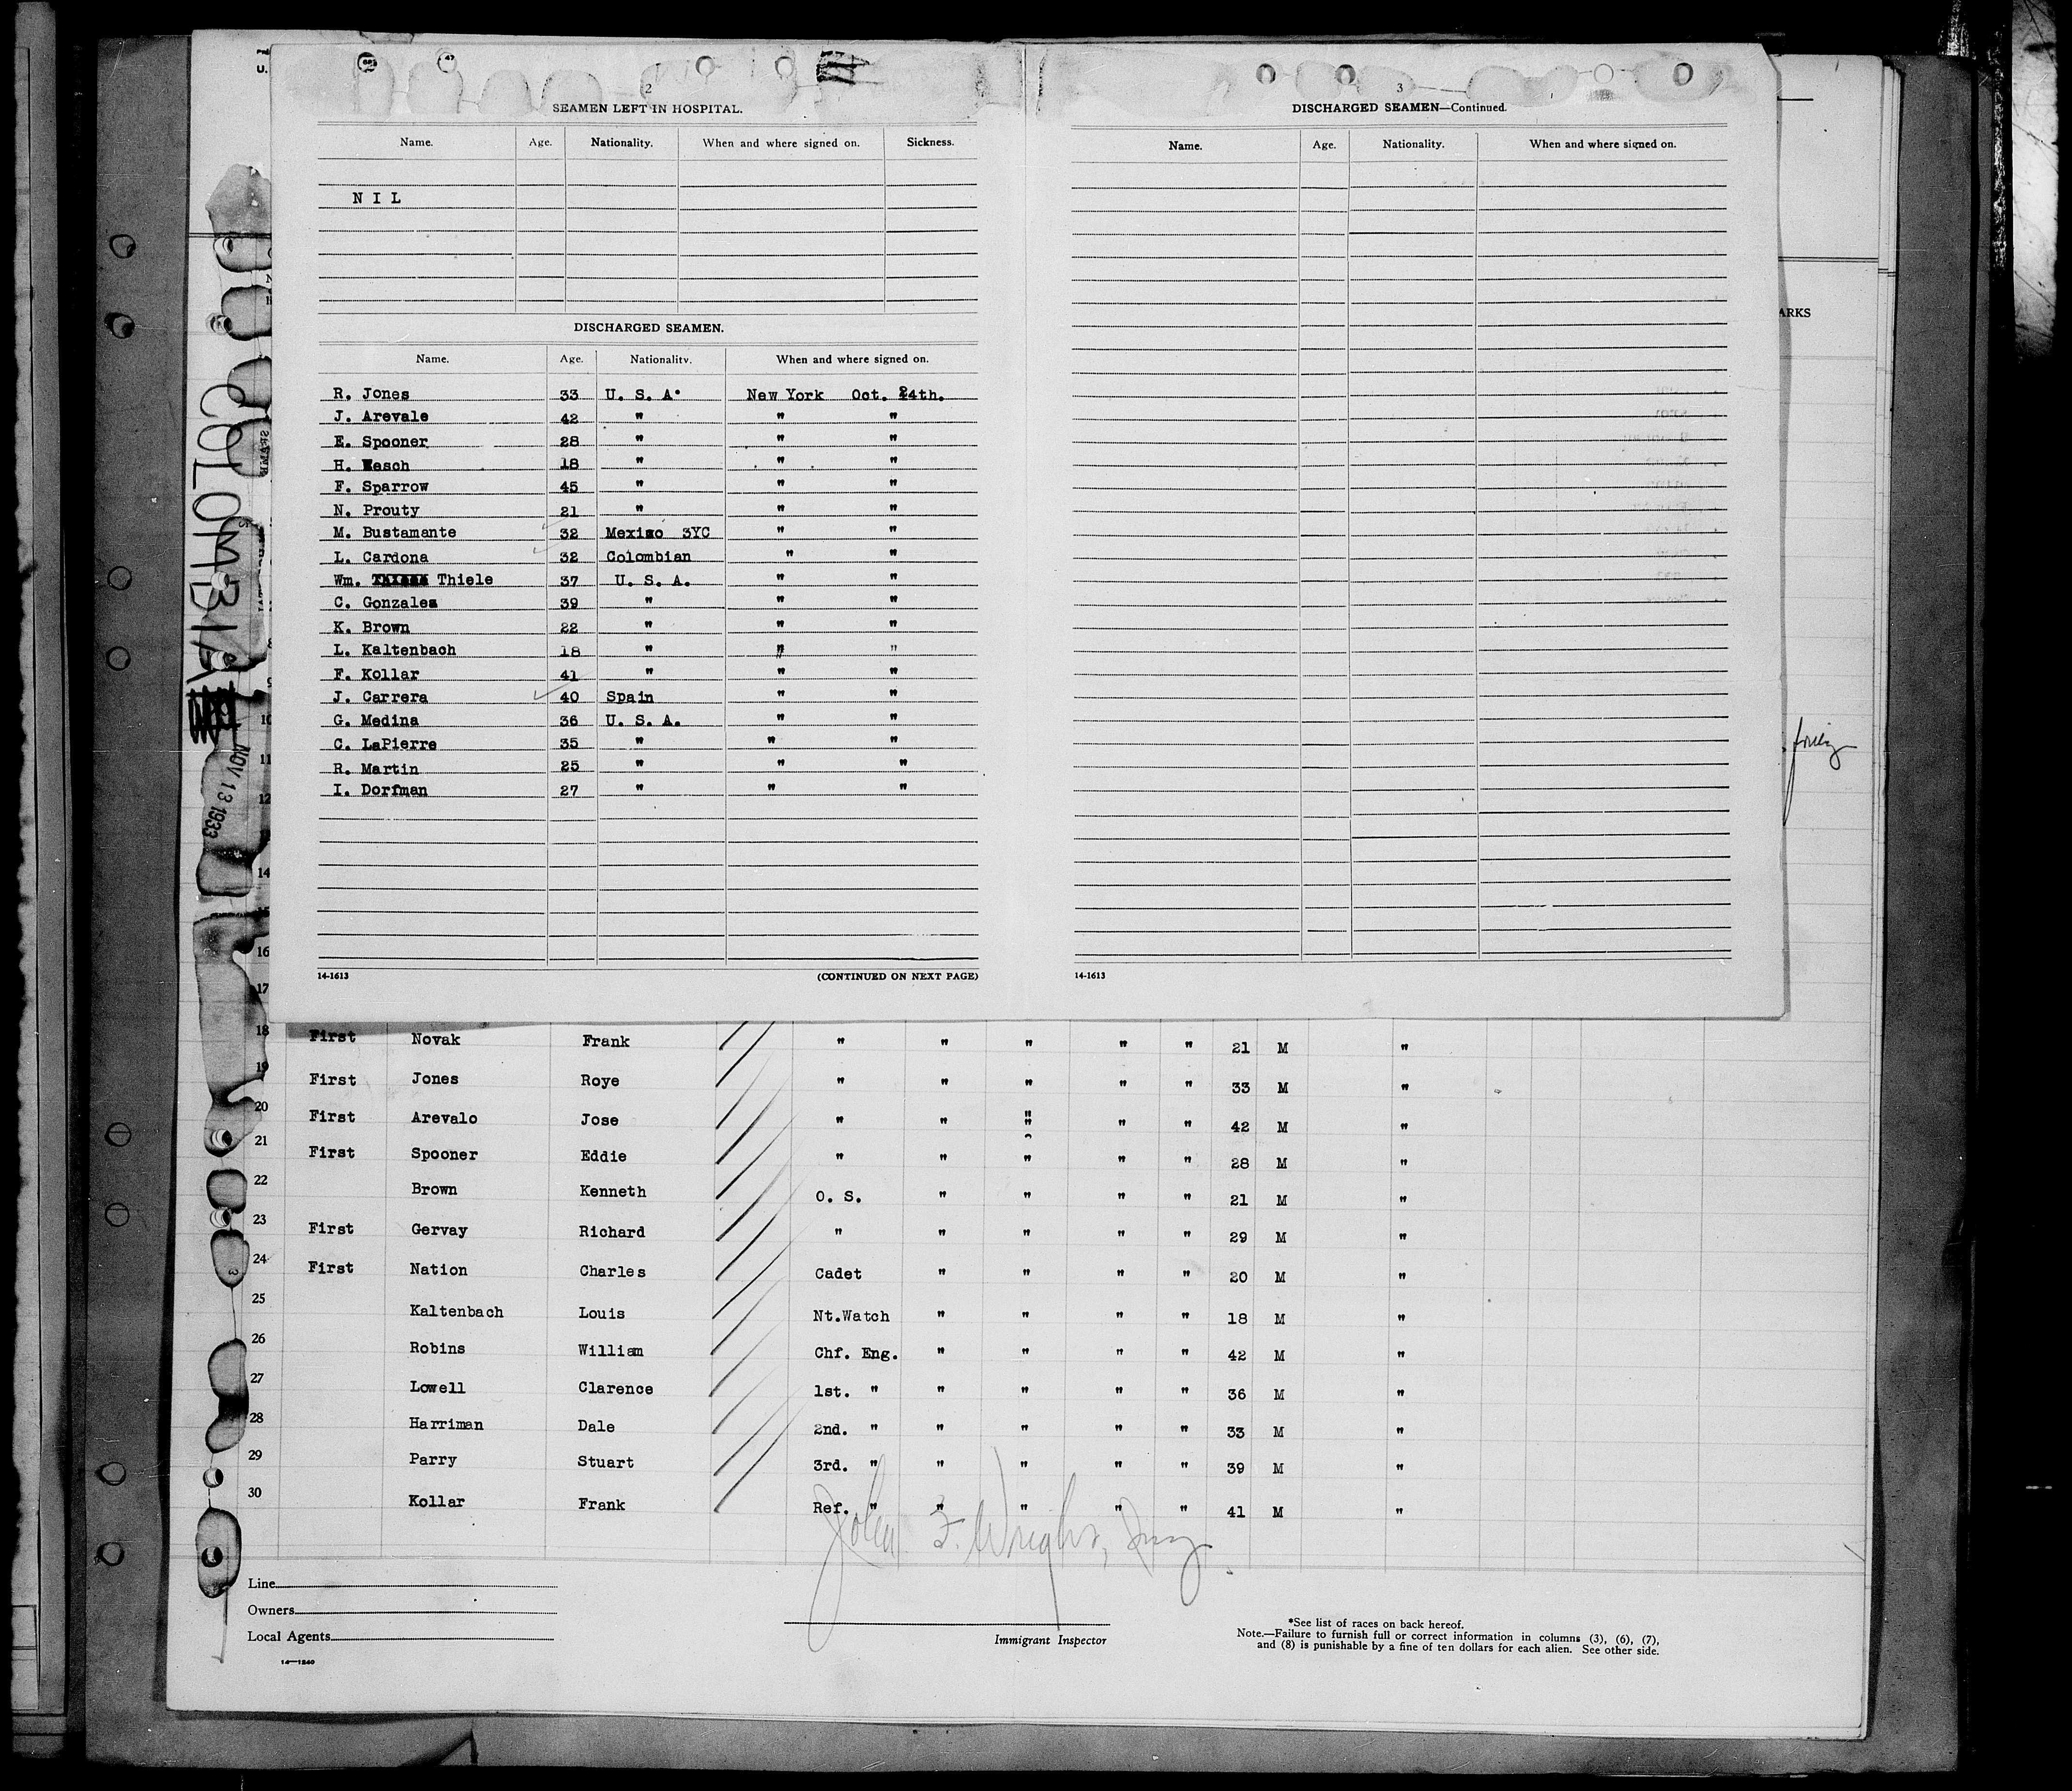 2
SEAMEN LEFT IN HOSPITAL.
Name. Age. Nationality. When and where signed on. Sickness.
N I L
DISCHARGED SEAMEN.
Name. Age. Nationality. When and where signed on.
R. Jones 33 U. S. A. New York Oct. 24th.
J. Arevale 42 " " "
E. Spooner 28 " " "
H. Wesch 18 " " "
F. Sparrow 45 " " "
N. Prouty 21 " " "
M. Bustamante 32 Mexico 3YC " "
L. Cardona 32 Colombian " "
Wm. Thiele 37 U. S. A. " "
C. Gonzales 39 " " "
K. Brown 22 " " "
L. Kaltenbach 18 " " "
F. Kollar 41 " " "
J. Carrera 40 Spain " "
G. Medina 36 U. S. A. " "
C. LaPierre 35 " " "
R. Martin 25 " " "
I. Dorfman 27 " " "
14-1613 (CONTINUED ON NEXT PAGE)
3
DISCHARGED SEAMEN—Continued.
Name. Age. Nationality. When and where signed on.
14-1613
ARKS
COLOMBIA
NOV 13 1933
10
11
12
14
16
17
18 First Novak Frank " " " " " 21 M "
19 First Jones Roye " " " " " 33 M "
20 First Arevalo Jose " " " " " 42 M "
21 First Spooner Eddie " " " " " 28 M "
22 Brown Kenneth O. S. " " " " 21 M "
23 First Gervay Richard " " " " " 29 M "
24 First Nation Charles Cadet " " " " 20 M "
25 Kaltenbach Louis Nt.Watch " " " " 18 M "
26 Robins William Chf. Eng. " " " " 42 M "
27 Lowell Clarence 1st. " " " " " 36 M "
28 Harriman Dale 2nd. " " " " " 33 M "
29 Parry Stuart 3rd. " " " " " 39 M "
30 Kollar Frank Ref. " " " " " 41 M "
John F. Wright,
Line
Owners
Local Agents
14—1240
Immigrant Inspector
*See list of races on back hereof.
Note.—Failure to furnish full or correct information in columns (3), (6), (7),
and (8) is punishable by a fine of ten dollars for each alien. See other side.